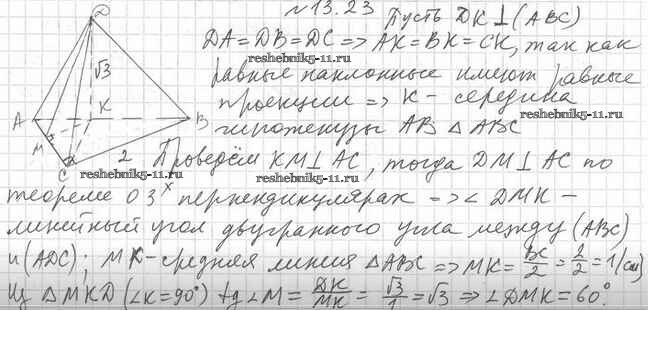 №13.23
Пусть DK⊥(ABC)
DA=DB=DC=>AK=BK=CK, так как
reshebnik5-11.ru
равные наклонные имеют равные
проекции => K - середина
гипотенузы AB △ABC
reshebnik5-11.ru
D
√3
K
A
B
M
C
2
Проведём KM⊥AC, тогда DM⊥AC по
reshebnik5-11.ru
теореме о 3х перпендикулярах => ∠DMK –
линейный угол двугранного угла между (ABC)
и (ADC); MK-средняя линия △ABC => MK = BC/2 = 2/2 = 1(см)
reshebnik5-11.ru
Из △MKD (∠K=90°) tg∠M = DK/MK = √3/1 = √3 => ∠DMK = 60°.